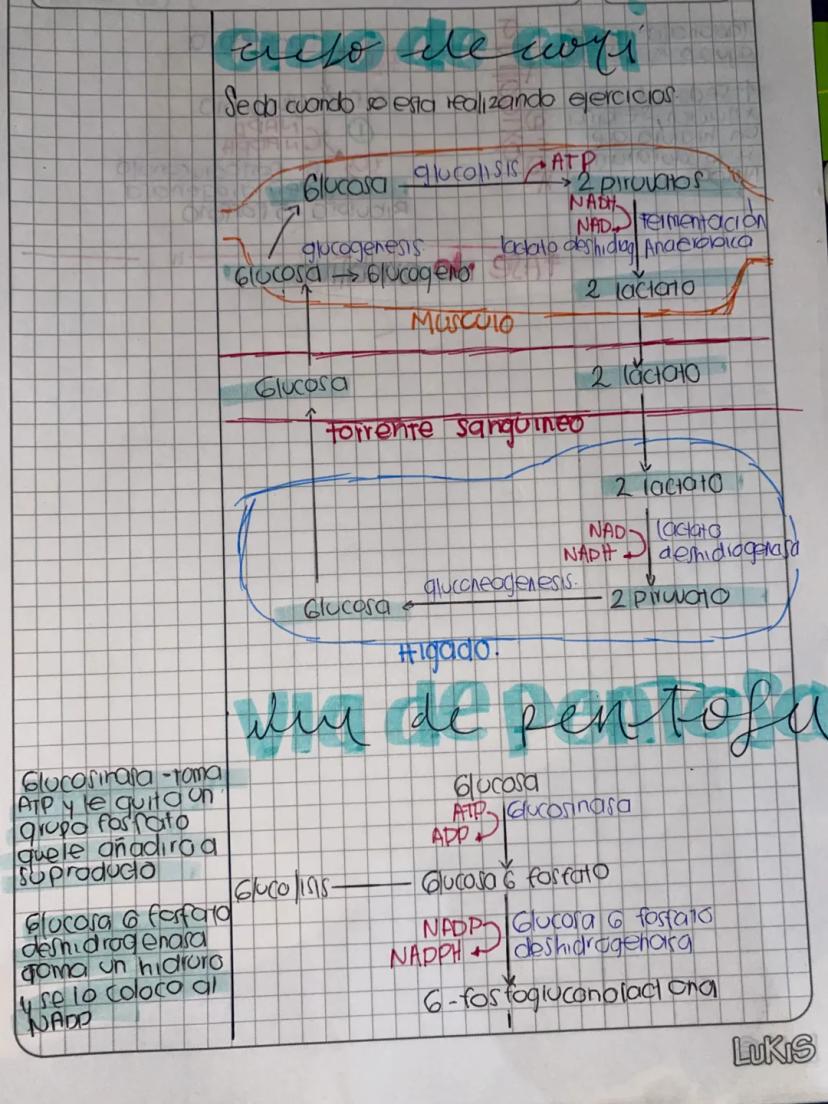 ciclo de cori
Se da cuando se esta realizando ejercicios.
Glucosa glucolisis ATP 2 piruvatos
NADH
NAD fermentación
lactato deshidrog Anaerobica
glucogenesis
Glucosa → Glucogeno
2 lactato
Musculo
Glucosa 2 lactato
torrente sanguineo
2 lactato
NAD lactato
NADH deshidrogenasa
gluconeogenesis.
Glucosa 2 piruvato
Higado.
via de pentosa
Glucosinasa - toma
ATP y le quita un
grupo fosfato
que le añadira a
su producto
Glucosa 6 fosfato
deshidrogenasa
toma un hidruro
y se lo coloco al
NADP
Glucosa
ATP Glucosinasa
ADP
Glucolisis Glucosa 6 fosfato
NADP Glucosa 6 fosfato
NADPH deshidrogenasa
6-fosfogluconolactona
LUKIS